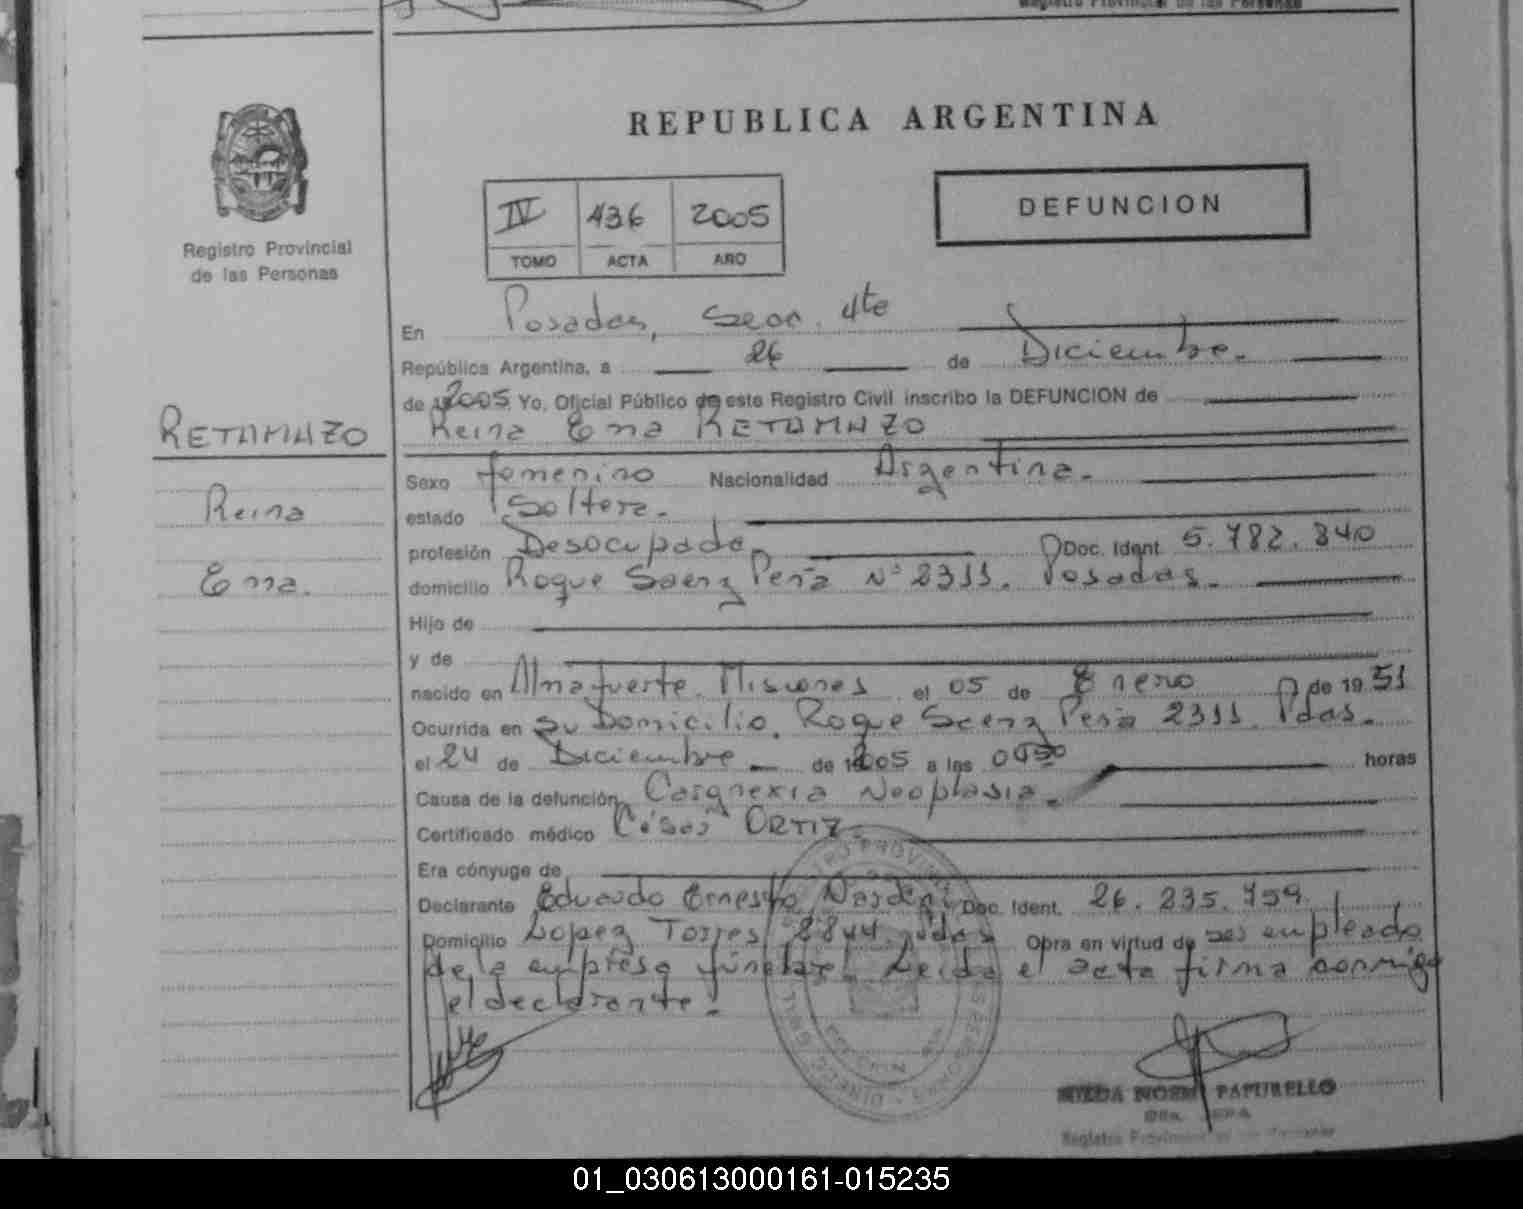 Registro Provincial de las Personas
REPUBLICA ARGENTINA
IV 436 2005
TOMO ACTA AÑO
DEFUNCION
Registro Provincial
de las Personas
RETAMAZO
Reina
Ema.
En Posadas, Secc. 4te
República Argentina, a 26 de Diciembre.
de 2005 Yo, Oficial Público de este Registro Civil inscribo la DEFUNCION de
Reina Ema RETAMAZO
Sexo femenino Nacionalidad Argentina.
estado Soltera.
profesión Desocupada Doc. Ident. 5.782.840
domicilio Roque Saenz Peña Nº 2311. Posadas.
Hijo de
y de
nacido en Almafuerte. Misiones el 05 de Enero de 1951
Ocurrida en Su Domicilio. Roque Saenz Peña 2311. Pdas.
el 24 de Diciembre de 2005 a las horas
Causa de la defunción Caignexia Neoplasia.
Certificado médico César ORTIZ.
Era cónyuge de
Declarante Eduardo Ernesto Doc. Ident. 26.235.759
Domicilio Lopez Torres 2844 Pdas Obra en virtud de ser empleado
de la empresa fúnebre. Leida el acta firma conmigo
el declarante.
NOEMI PAPURELLO
Registro
01_030613000161-015235